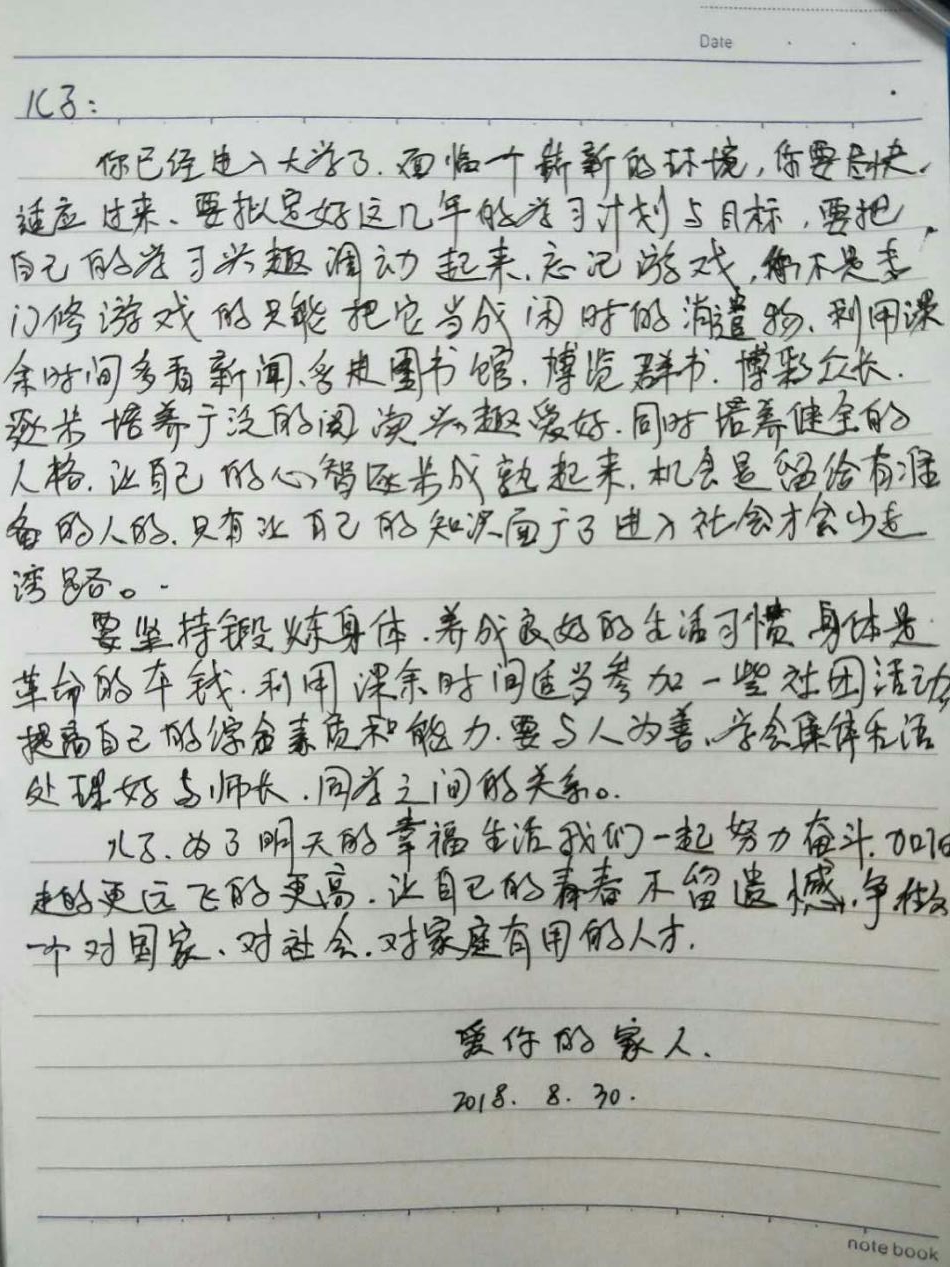 Date
儿子：
你已经进入大学了.面临一个崭新的环境,你要尽快
适应过来、要拟定好这几年的学习计划与目标,要把
自己的学习兴趣调动起来.忘记游戏,你不是专
门修游戏的只能把它当成闲时的消遣物、利用课
余时间多看新闻、多进图书馆.博览群书.博彩众长.
逐步培养广泛的阅读兴趣爱好.同时培养健全的
人格.让自己的心智逐步成熟起来.机会是留给有准
备的人的.只有让自己的知识面广了进入社会才会少走
湾路。
要坚持锻炼身体.养成良好的生活习惯身体是
革命的本钱.利用课余时间适当参加一些社团活动
提高自己的综合素质和能力.要与人为善、学会集体生活
处理好与师长.同学之间的关系。
儿子、为了明天的幸福生活我们一起努力奋斗.加油
越的更远飞的更高.让自己的青春不留遗憾.争做
一个对国家、对社会.对家庭有用的人才.
爱你的家人.
2018. 8. 30.
note book